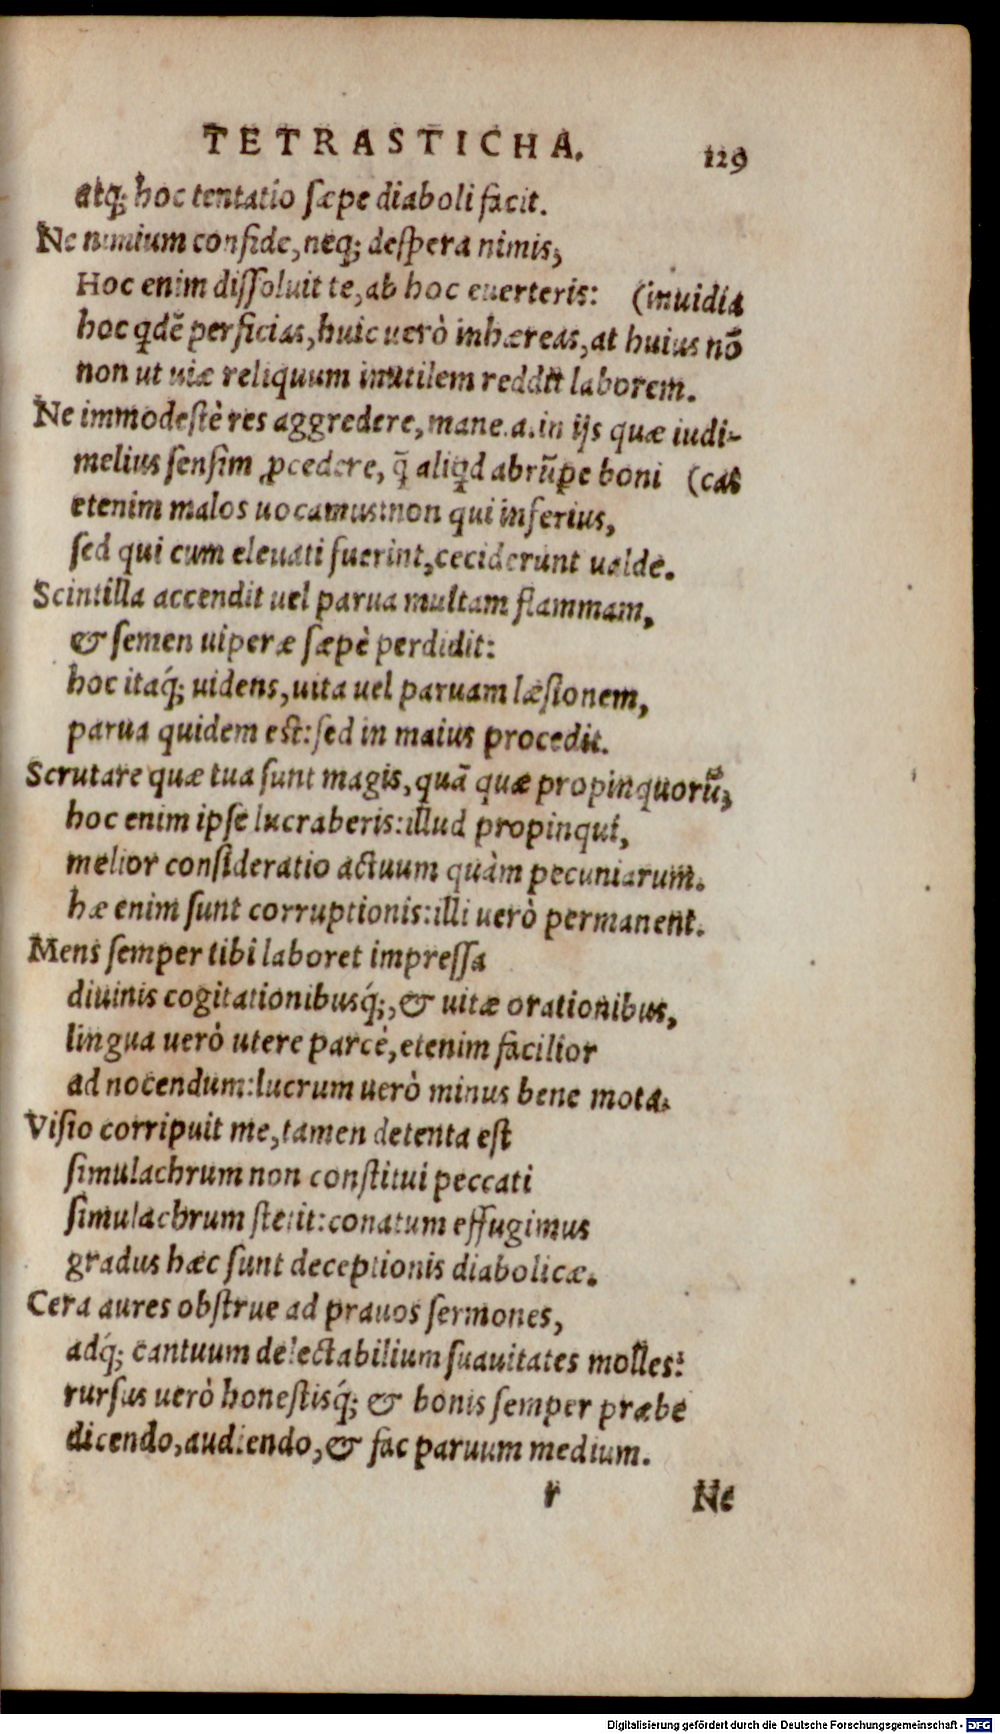 TETRASTICHA. 129
atq; hoc tentatio sæpe diaboli facit.
Ne nimium confide, neq; despera nimis,
Hoc enim dissoluit te, ab hoc euerteris: (inuidia
hoc qdẽ perficias, huic uerò inhæreas, at huius nõ
non ut uiæ reliquum inutilem reddit laborem.
Ne immodestè res aggredere, mane.a.in ijs quæ iudi-
melius sensim ꝓcedere, q̃ aliqd abrũpe boni (cas
etenim malos uocamus: non qui inferius,
sed qui cum eleuati fuerint, ceciderunt ualde.
Scintilla accendit uel parua multam flammam,
& semen uiperæ sæpè perdidit:
hoc itaq́; uidens, uita uel paruam læsionem,
parua quidem est: sed in maius procedit.
Scrutare quæ tua sunt magis, quã quæ propinquorũ,
hoc enim ipse lucraberis: illud propinqui,
melior consideratio actuum quàm pecuniarum.
hæ enim sunt corruptionis: illi uerò permanent.
Mens semper tibi laboret impressa
diuinis cogitationibusq́;, & uitæ orationibus,
lingua uerò utere parcè, etenim facilior
ad nocendum: lucrum uerò minus bene mota.
Visio corripuit me, tamen detenta est
simulachrum non constitui peccati
simulachrum stetit: conatum effugimus
gradus hæc sunt deceptionis diabolicæ.
Cera aures obstrue ad prauos sermones,
adq́; cantuum delectabilium suauitates molles:
rursus uerò honestisq́; & bonis semper præbe
dicendo, audiendo, & fac paruum medium.
r Ne
Digitalisierung gefördert durch die Deutsche Forschungsgemeinschaft - DFG